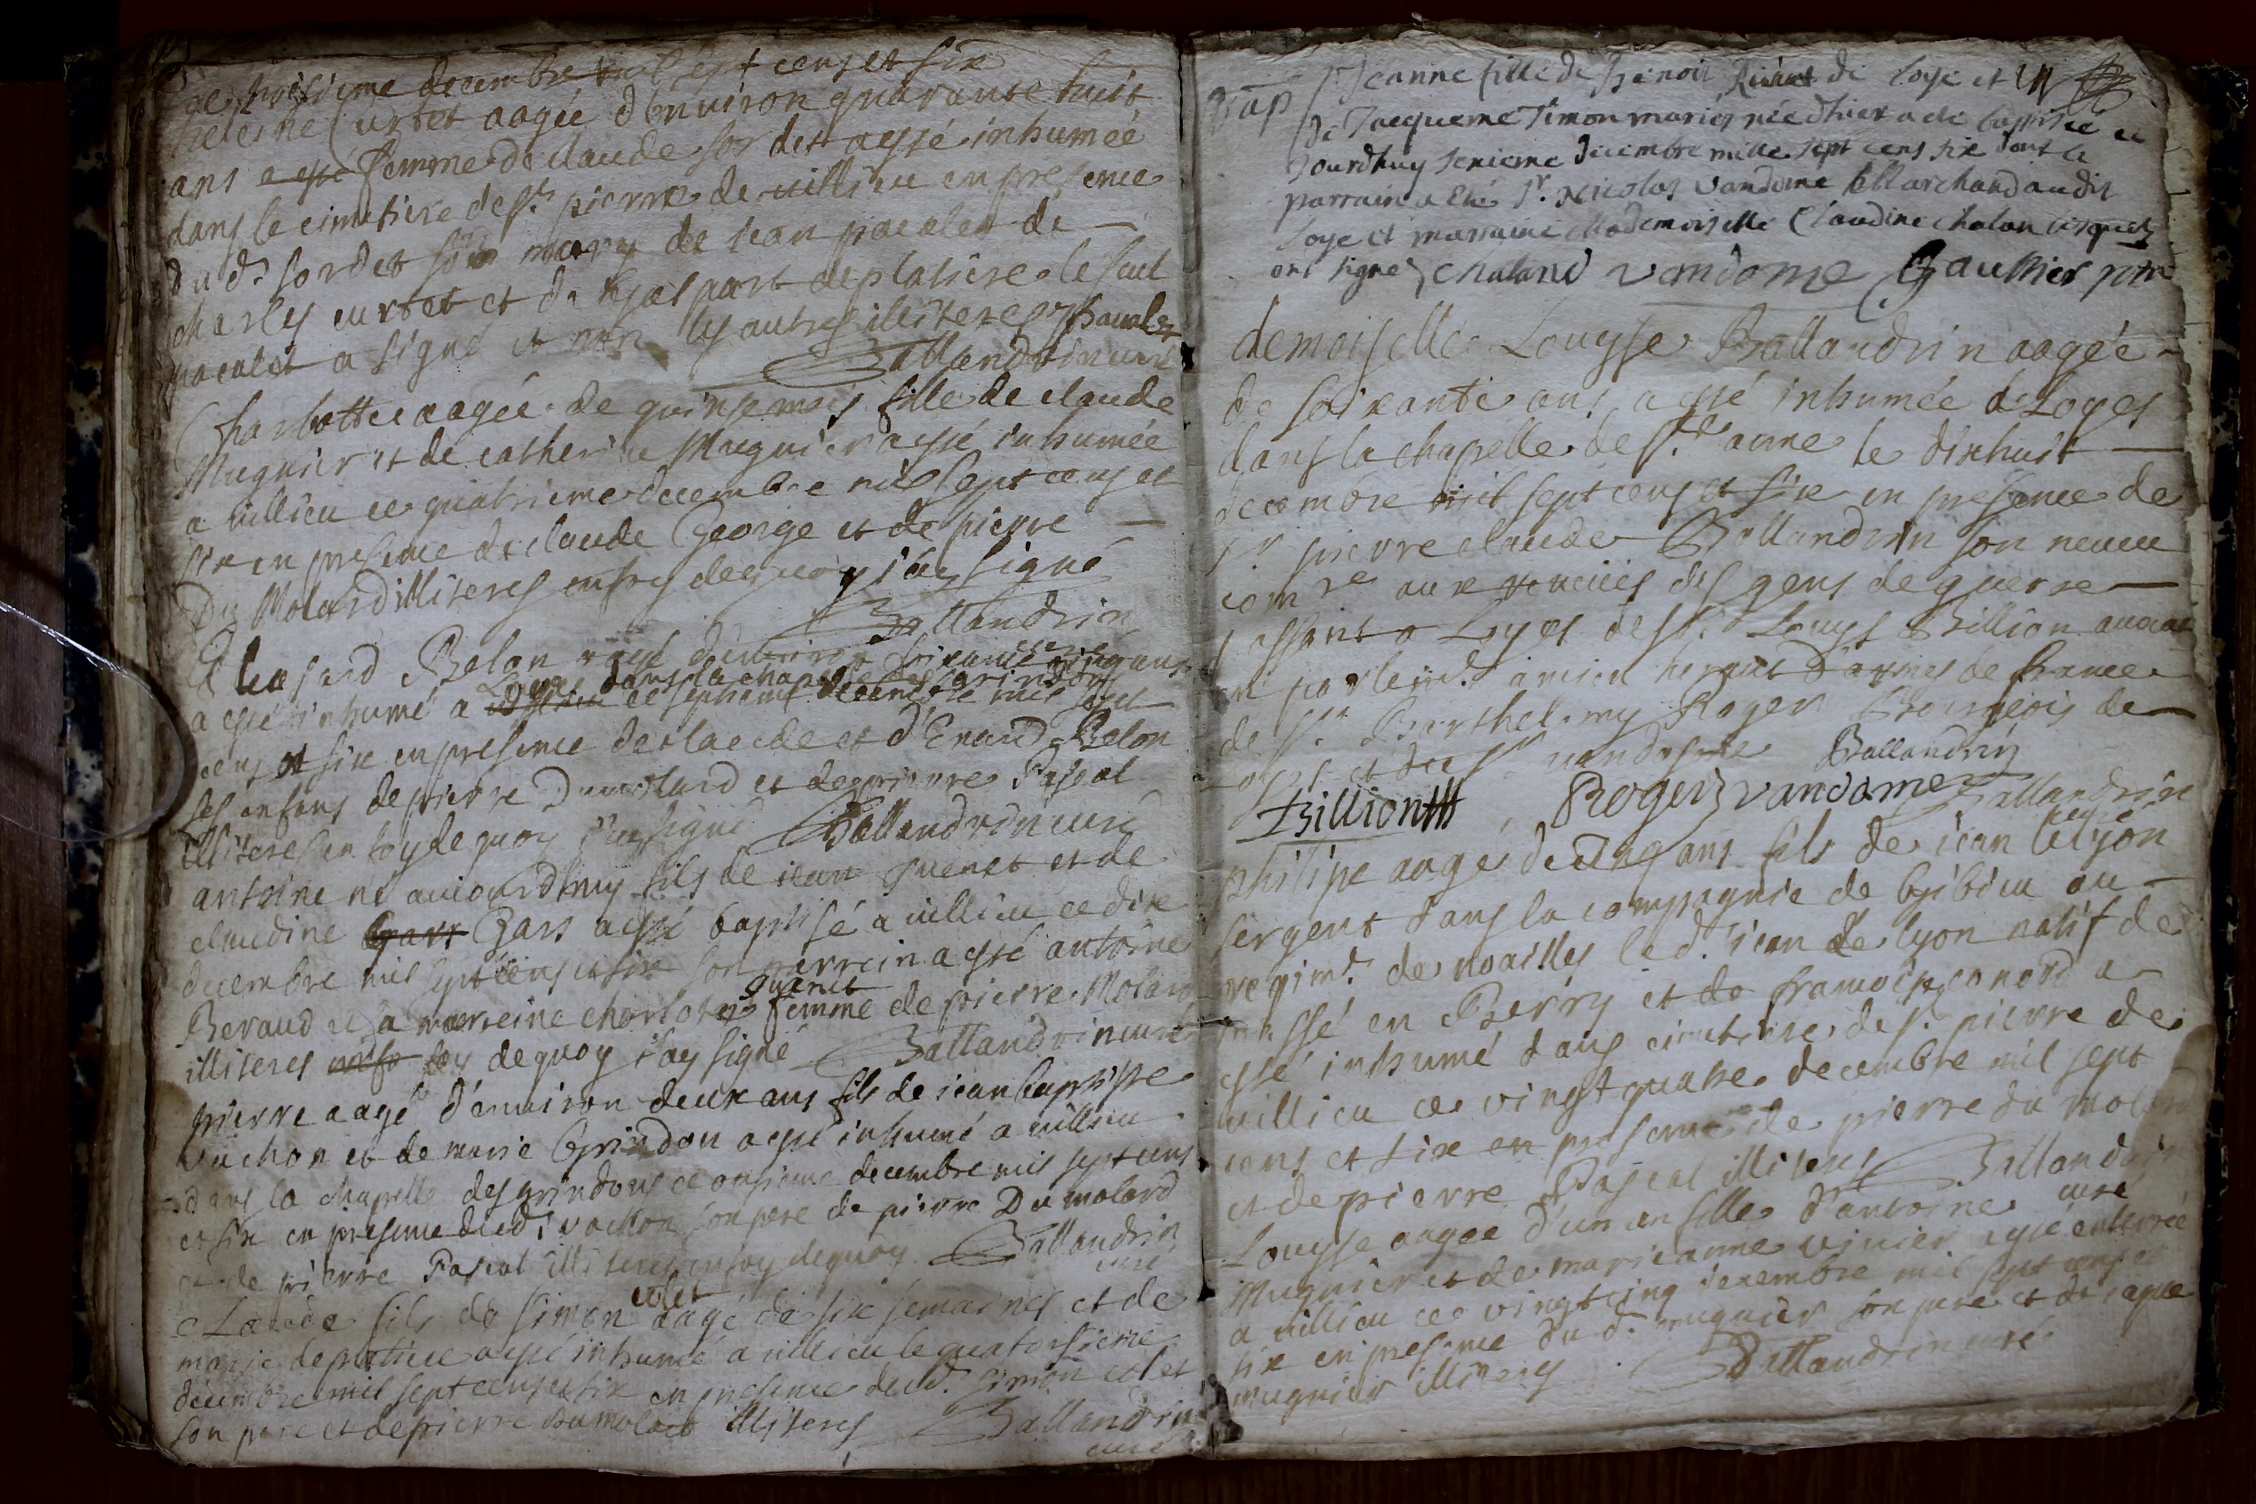 ce troisieme decembre mil sept cens et six
heleine Curtet aagée d'environ quarante huit
ans a esté femme de claude sordet a esté inhumée
dans le cimetiere de st. pierre de villieu en presence
dud. sordet son mary de jean pacalet de
charles curtet et de gaspart de platiere le seul
pacalet a signé et non les autres illiteres JPacalet
Ballandrin curé
Charlotte aagée de quinse mois fille de claude
Mugnier et de catherine Mugnier a esté inhumée
a villieu ce quatrieme decembre mil sept cens et
six en presence de claude George et de pierre
Du Molard illiteres en foy de quoy j'ay signé
Ballandrin
curé
Belon aagé d'environ soixante cinq ans
Loyes dans la chapelle des grindons
a esté inhumé a villieu ce septieme decembre mil sept
cens et six en presence de claude et d'Enard Belon
ses enfans de pierre Dumolard et de pierre Pascal
illiteres en foy de quoy j'ay signé Ballandrin curé
antoine né aujourdhuy fils de jean guenet et de
claudine gars Gars a esté baptisé a villieu ce dix
decembre mil sept cens et six son parrein a esté antoine
guenet
Beraud et la marreine charlotte femme de pierre Molard
illiteres en foy de quoy j'ay signé Ballandrin curé
pierre aagé d'environ deux ans fils de jean baptiste
vachon et de marie Grindon a esté inhumé a villieu
dans la chapelle des grindons ce onsieme decembre mil sept cens
et six en presence dud. vachon son pere de pierre Du molard
et de pierre Pascal illiteres en foy de quoy Ballandrin
curé
colet
Claude fils de simon aagé de six semaines et de
marie a esté inhumé a villieu le quatorsieme
decembre mil sept cens et six en presence dud. simon colet
son pere et de pierre dumolard illiteres Ballandrin
curé
Bap Jeanne fille de Benoit de Loye et
de Jacqueme Simon mariés née d'hier a été baptisée ce
Jourdhuy seixieme Decembre mille sept cens six dont le
parrain a été Sr. Nicolas Vandome Marchand audit
Loye et marraine Mademoiselle Claudine chalan lesquels
ont signé chaland Vandome Gaultier ptre
demoiselle Louyse Ballandrin aagée
de soixante ans a esté inhumée de Loyes
dans la chapelle de ste anne le dixhuit
decembre mil sept cens et six en presence de
sr. pierre claude Ballandrin son neveu
comre aux reveües des gens de guerre
passant a Loyes de sr. Louys Billion avocat
en parlemt. ancien heraut d'armes de france
de sr. Barthelemy Roger Bourgeois de
Loyes et du sr vandosme Ballandrin
Billion Roger vandame Ballandrin
curé
philipe aagé de cinq ans fils de jean le lyon
sergent dans la compagnie de Gibieu au
regimt. de noailles led. jean de lyon natif de
en Berry et de francoise conord a
esté inhumé dans cimetiere de st. pierre de
villieu ce vingt quatre decembre mil sept
cens et six en presence de pierre du molard
et de pierre Pascal illiteres Ballandrin
curé
Louyse aagée d'un an fille d'antoine
Mugnier et de marieanne vinier a esté enterrée
a villieu ce vingt cinq decembre mil sept cens et
six en presence du d. mugnier son pere et de
mugnier illiteres Ballandrin curé